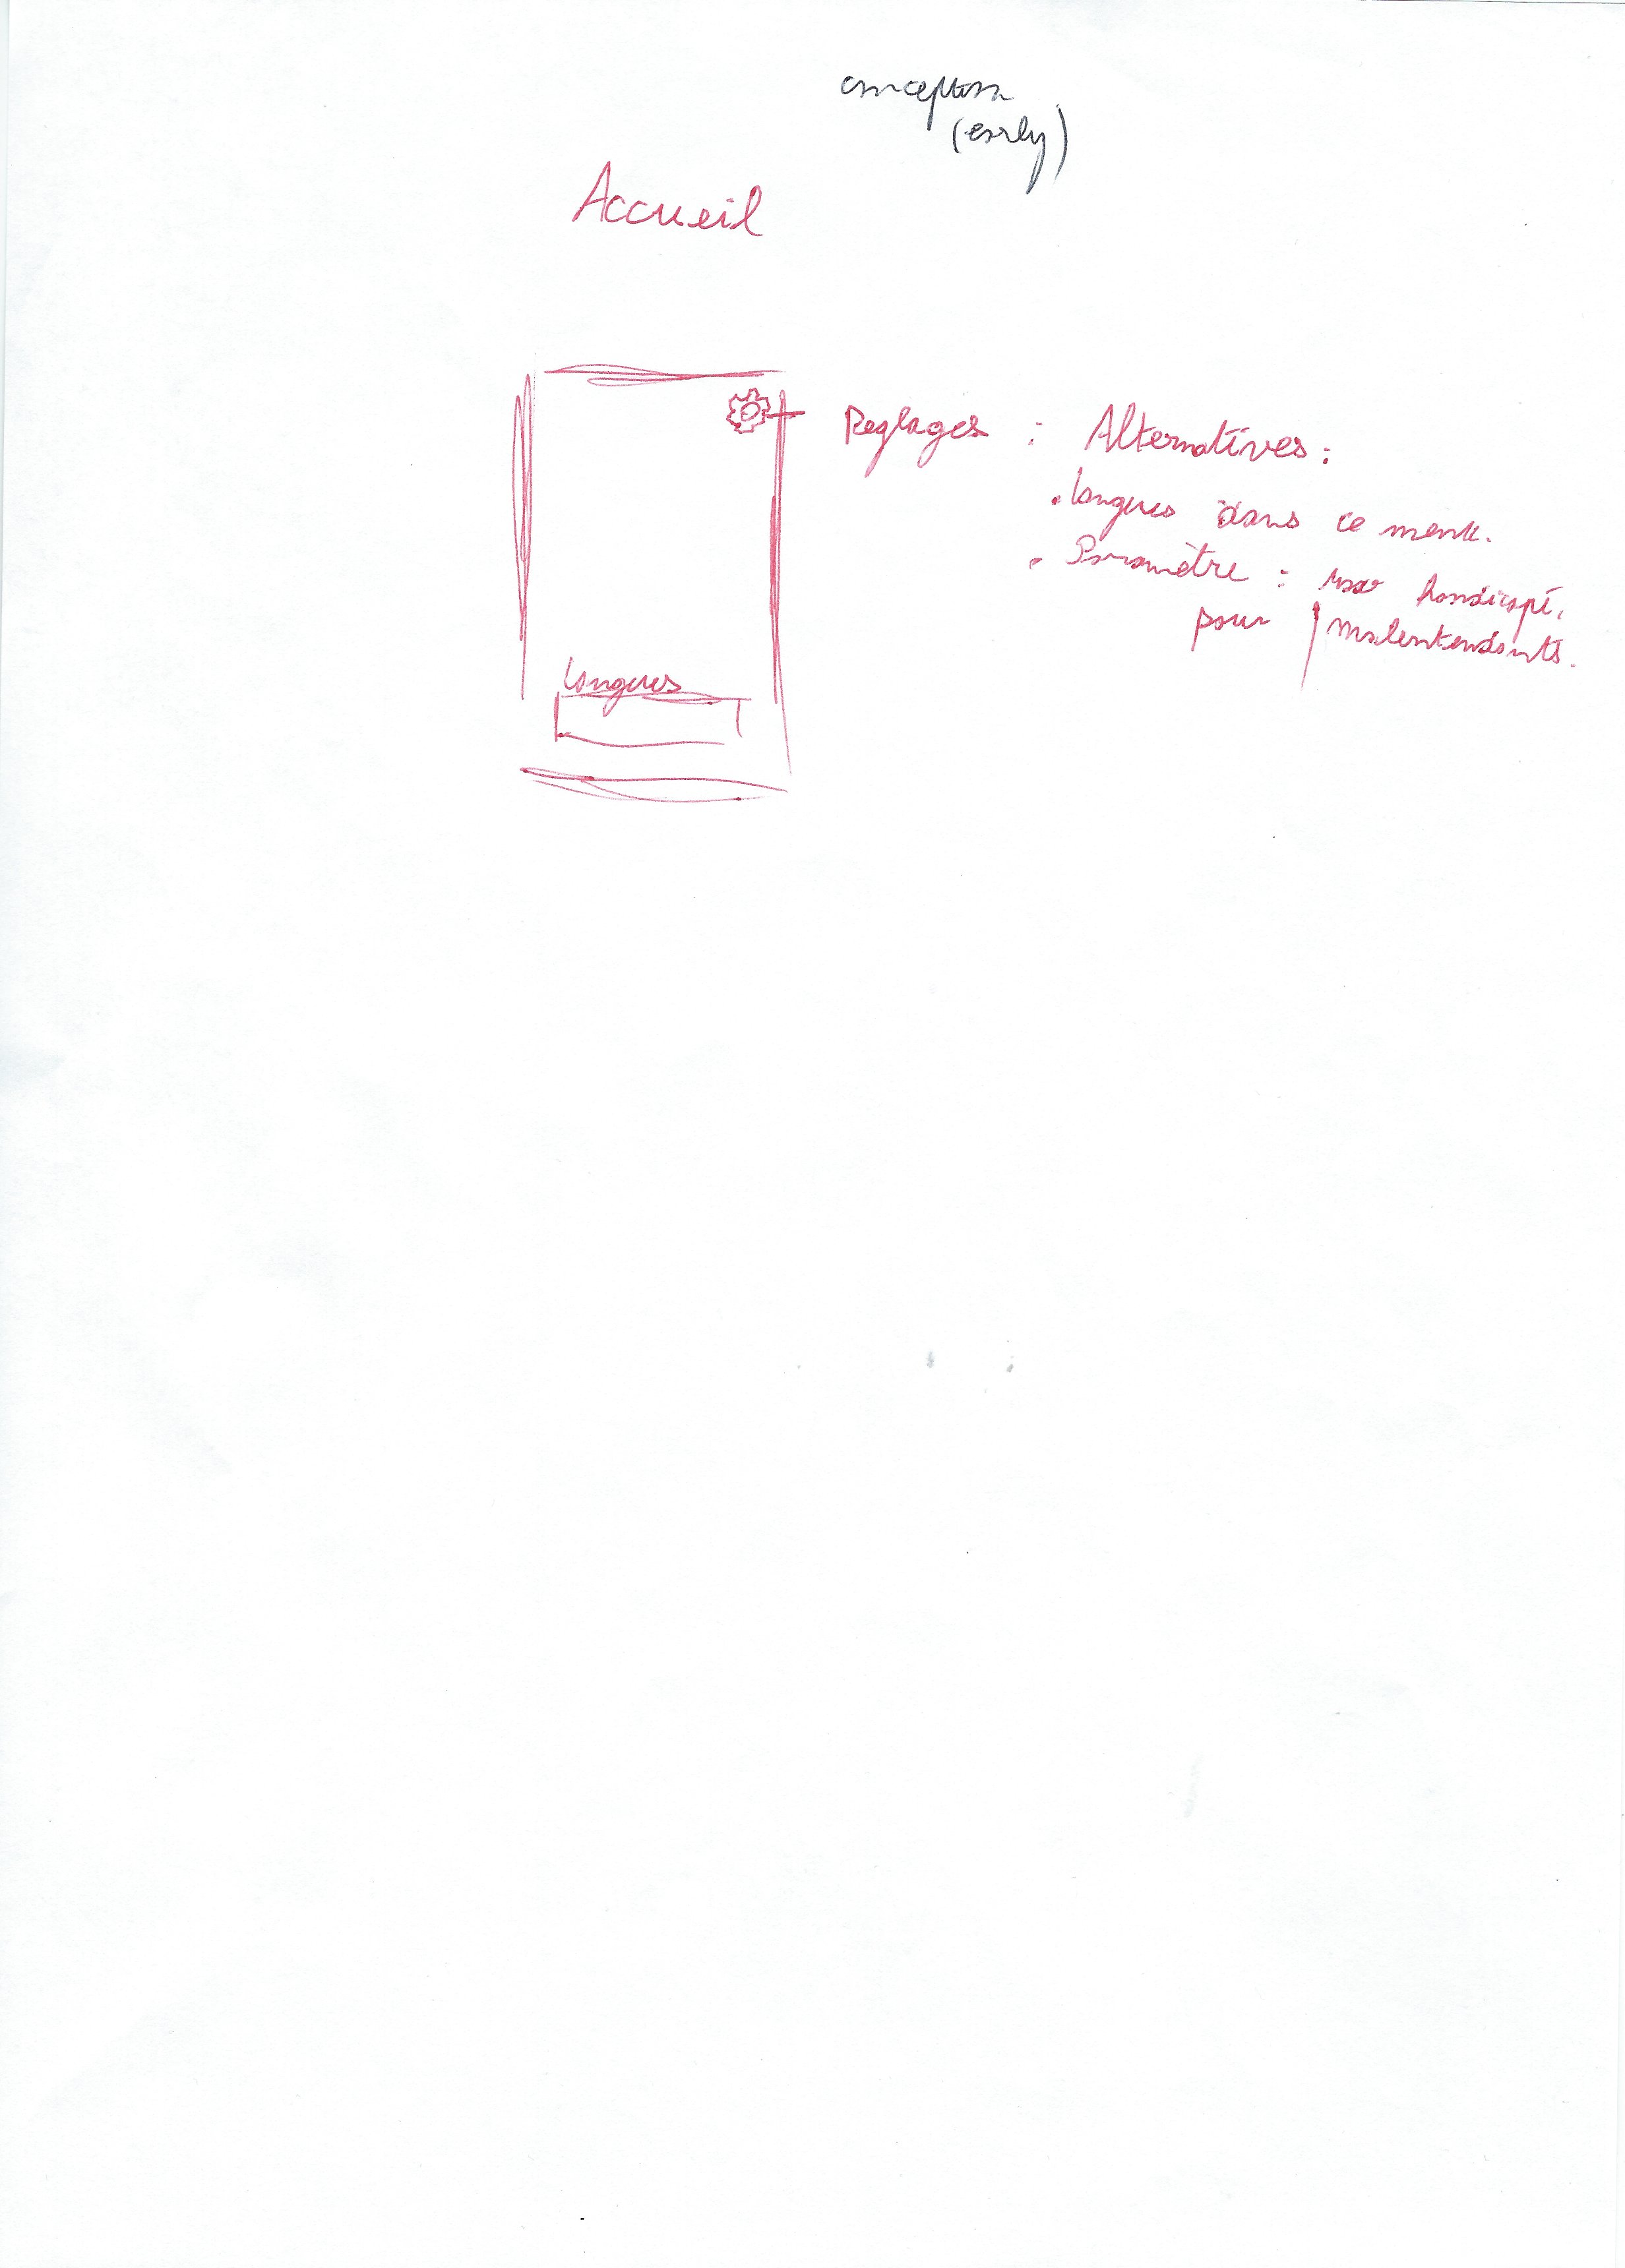 conception
(early)
Accueil
Reglages : Alternatives :
. langues dans ce menu.
. Paramètre : handicapé,
pour malentendants.
Langues